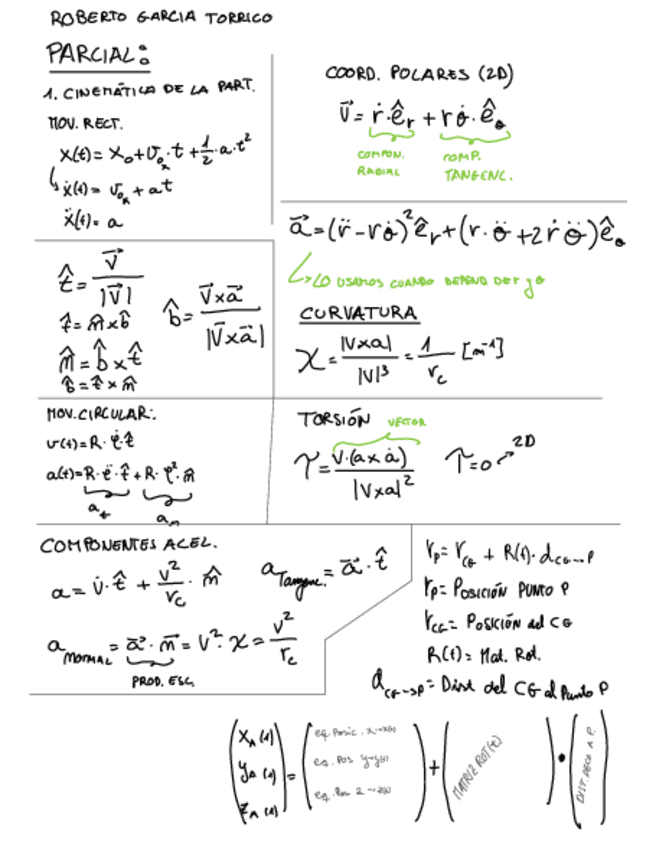 ROBERTO GARCIA TORRICO
PARCIAL:
1. CINEMÁTICA DE LA PART.
MOV. RECT.
x(t) = x₀ + v₀ₓ · t + ½ · a · t²
ẋ(t) = v₀ₓ + a t
ẍ(t) = a
COORD. POLARES (2D)
v⃗ = ṙ · ê_r + r θ̇ · ê_θ
COMPON. RADIAL
COMP. TANGENC.
a⃗ = (r̈ - r θ̇)² ê_r + (r · θ̈ + 2 ṙ θ̈) ê_θ
LO USAMOS CUANDO DEPEND DE r y θ
t̂ = v⃗ / |v⃗|
t̂ = n̂ x b̂
n̂ = b̂ x t̂
b̂ = t̂ x n̂
b̂ = v⃗ x a⃗ / |v⃗ x a⃗|
CURVATURA
χ = |v x a| / |v|³ = 1 / r_c [m⁻¹]
MOV. CIRCULAR:
v(t) = R · φ̇ · t̂
a(t) = R · φ̈ · t̂ + R · φ̇² · n̂
a_t
a_n
TORSIÓN
VECTOR
τ = v · (a x ȧ) / |v x a|²
τ = 0
2D
COMPONENTES ACEL.
a = v̇ · t̂ + v² / r_c · n̂
a Tangenc. = a⃗ · t̂
a NORMAL = a⃗ · n⃗ = v² · χ = v² / r_c
PROD. ESC.
r_P = r_CG + R(t) · d_CG→P
r_P = POSICIÓN PUNTO P
r_CG = POSICIÓN del CG
R(t) = Mat. Rot.
d_CG→P = Dist del CG al Punto P
x_A (t)
y_A (t)
z_A (t)
=
eq. Posic. x→x(t)
eq. Pos y→y(t)
eq. Pos z→z(t)
+
MATRIZ ROT(t)
•